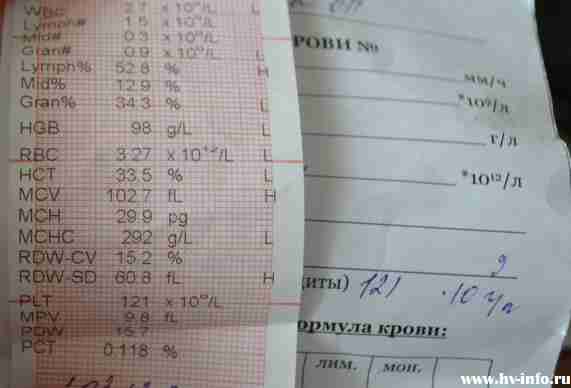 WBC 2.7 x 10⁹/L L
Lymph# 1.5 x 10⁹/L
Mid# 0.3 x 10⁹/L
Gran# 0.9 x 10⁹/L L
Lymph% 52.8 % H
Mid% 12.9 %
Gran% 34.3 % L
HGB 98 g/L L
RBC 3.27 x 10¹²/L L
HCT 33.5 % L
MCV 102.7 fL H
MCH 29.9 pg
MCHC 292 g/L L
RDW-CV 15.2 %
RDW-SD 60.8 fL H
PLT 121 x 10⁹/L
MPV 9.8 fL
PDW 15.7
PCT 0.118 %
РОВИ №9
мм/ч
*10⁹/л
г/л
*10¹²/л
9
циты) 121 ·10
ормула крови:
лим. мон.
www.hv-info.ru